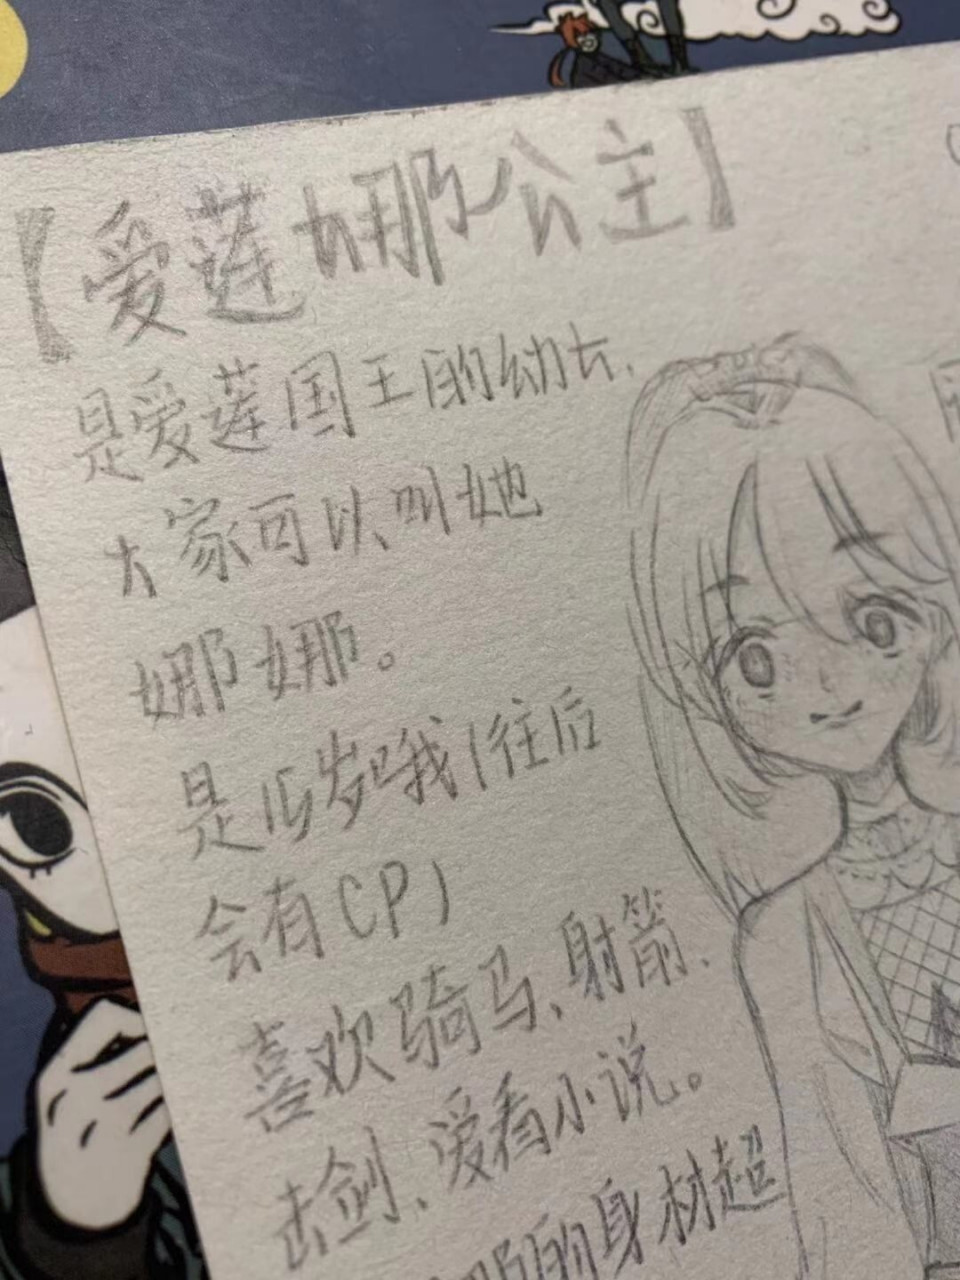 【爱莲娜公主】
是爱莲国王的幼女、
大家可以叫她
娜娜。
是15岁哦(往后
会有CP)
喜欢骑马、射箭、
击剑、爱看小说。
的身材超